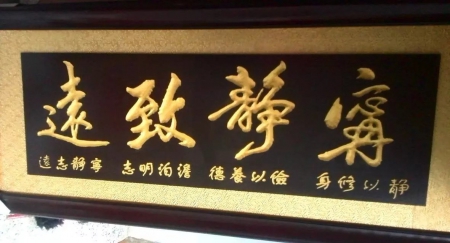 寧靜致遠
静以修身 儉以養德 澹泊明志 寧靜志遠